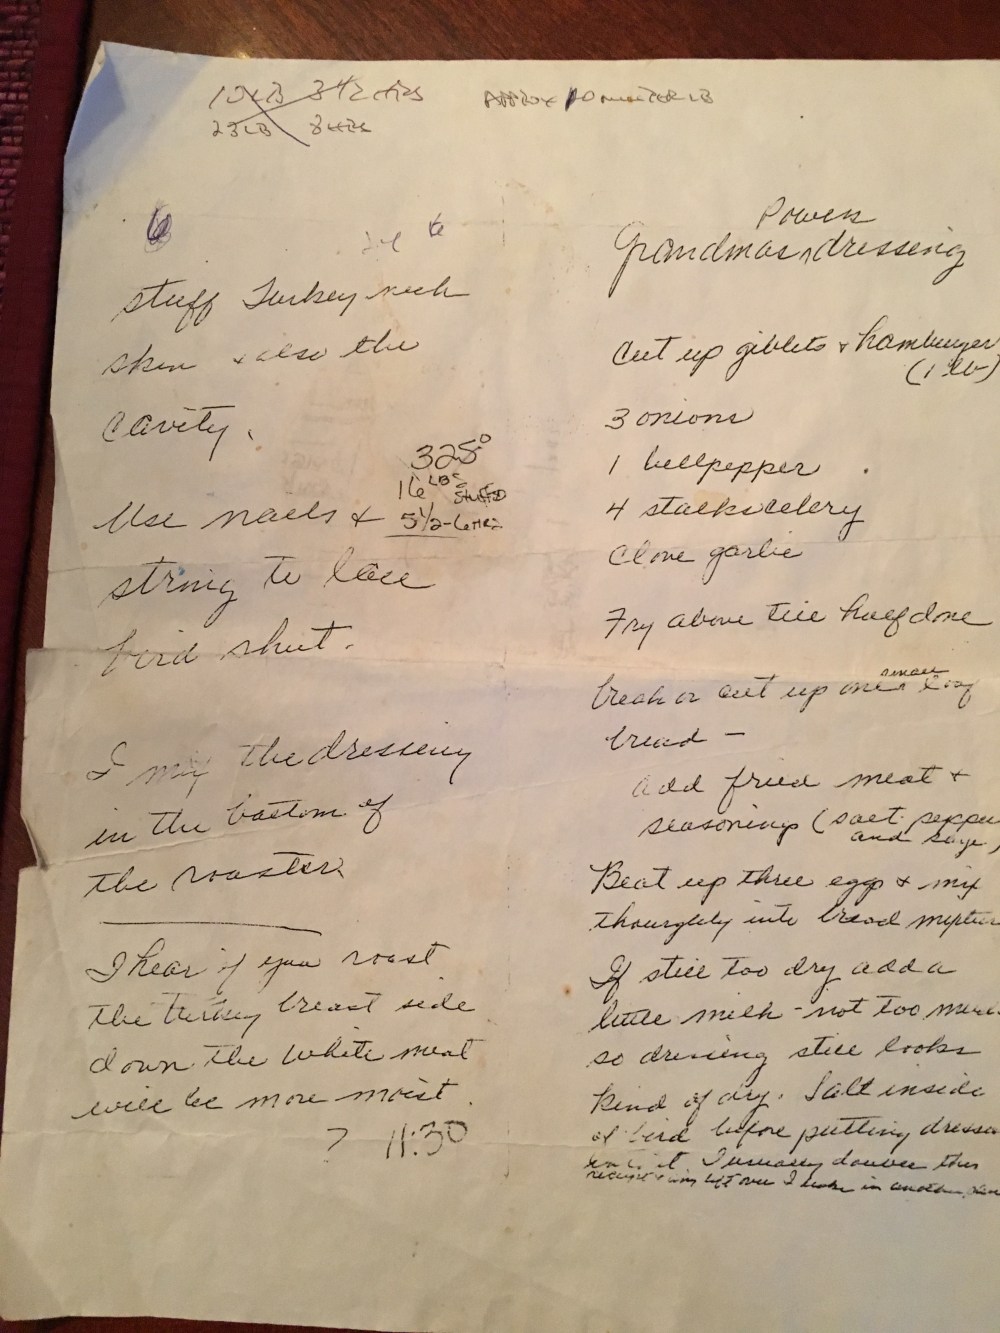 23 LB
Approx
6
stuff Turkey neck
skin + also the
cavity.
325°
16 LBS STUFFED
5 1/2-6 HRS
Use nails &
string to lace
bird shut.
I mix the dressing
in the bottom of
the roaster.
I hear if you roast
the turkey breast side
down the white meat
will be more moist.
? 11:30
Powers
Grandmas dressing
Cut up giblets + hamburger
(1 lb)
3 onions
1 bellpepper
4 stalks celery
Clove garlic
Fry above till half done
break or cut up one small loaf
bread -
add fried meat +
seasonings (salt pepper
and sage)
Beat up three eggs + mix
thourghly into bread mixture
If still too dry add a
little milk - not too much
so dressing still looks
kind of dry. Salt inside
of bird before putting
it. I usually double this
left over I bake in another